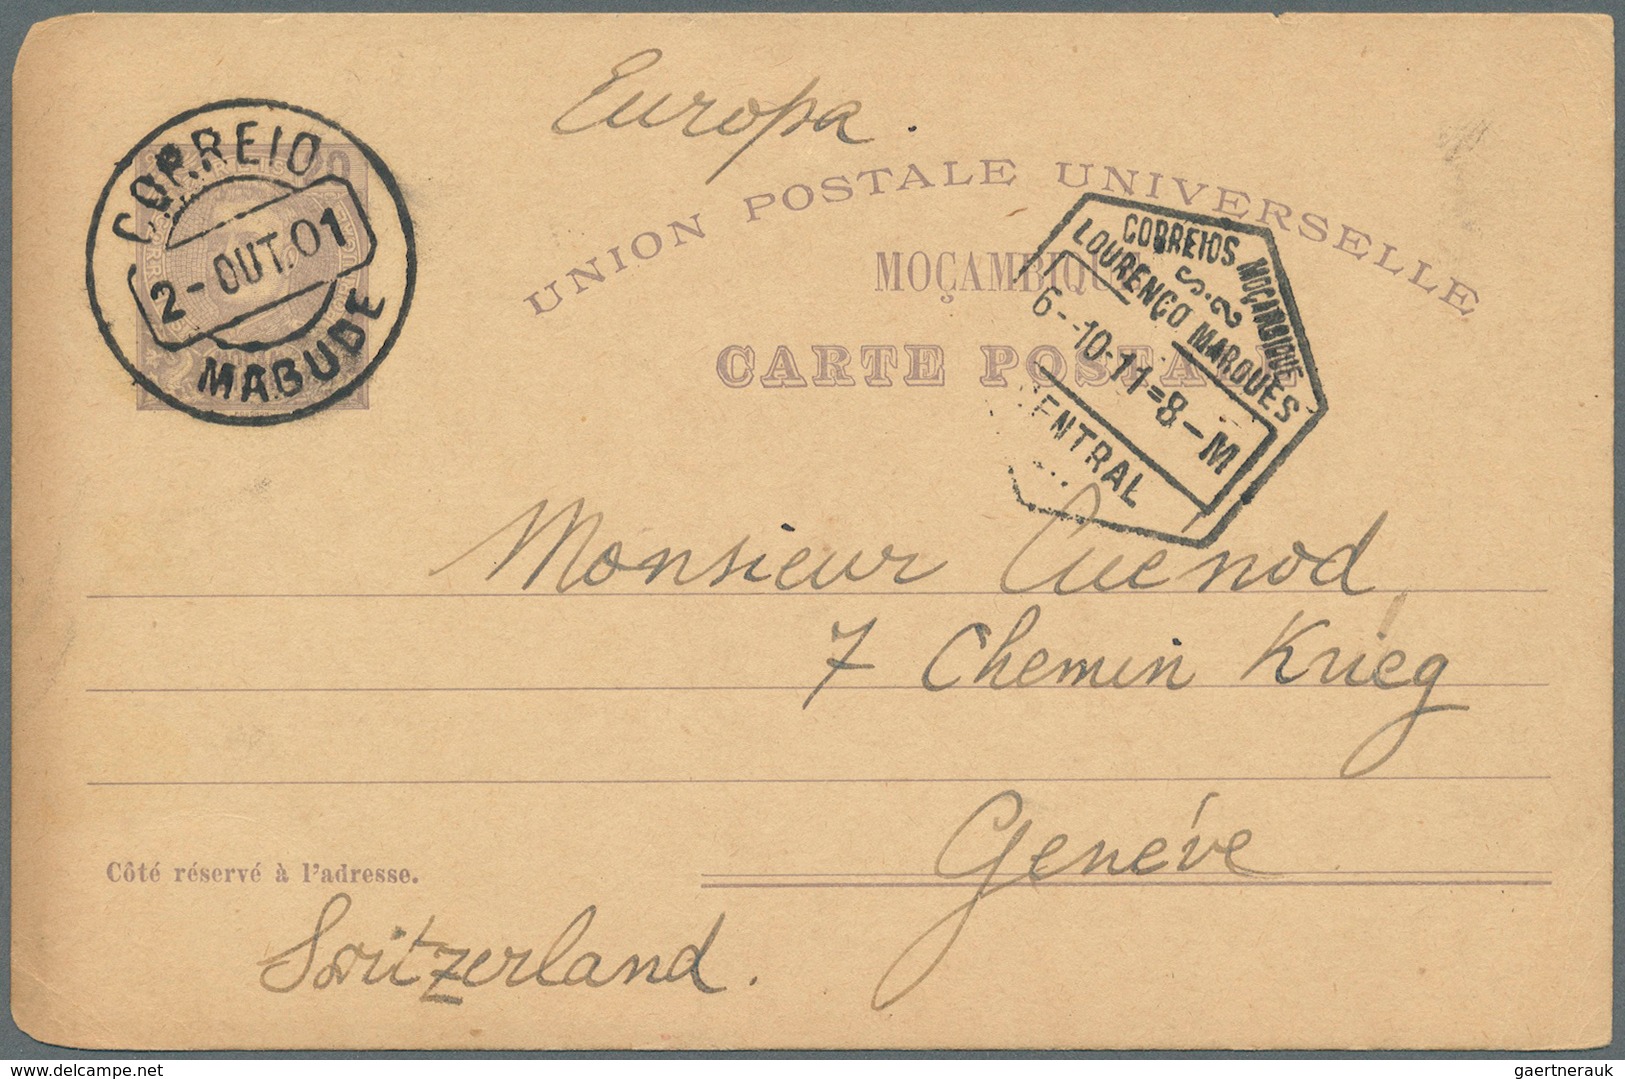 Europa.
UNION POSTALE UNIVERSELLE
MOÇAMBIQU
CARTE POSTALE
CORREIO
2-OUT.01
MABUDE
CORREIOS MOÇAMBIQUE
S.2
LOURENÇO MARQUES
6--10-11=8-M
CENTRAL
Monsieur Cuenod
7 Chemin Krieg
Genève
Côté réservé à l'adresse.
Switzerland.
delcampe.net
gaertnerauk